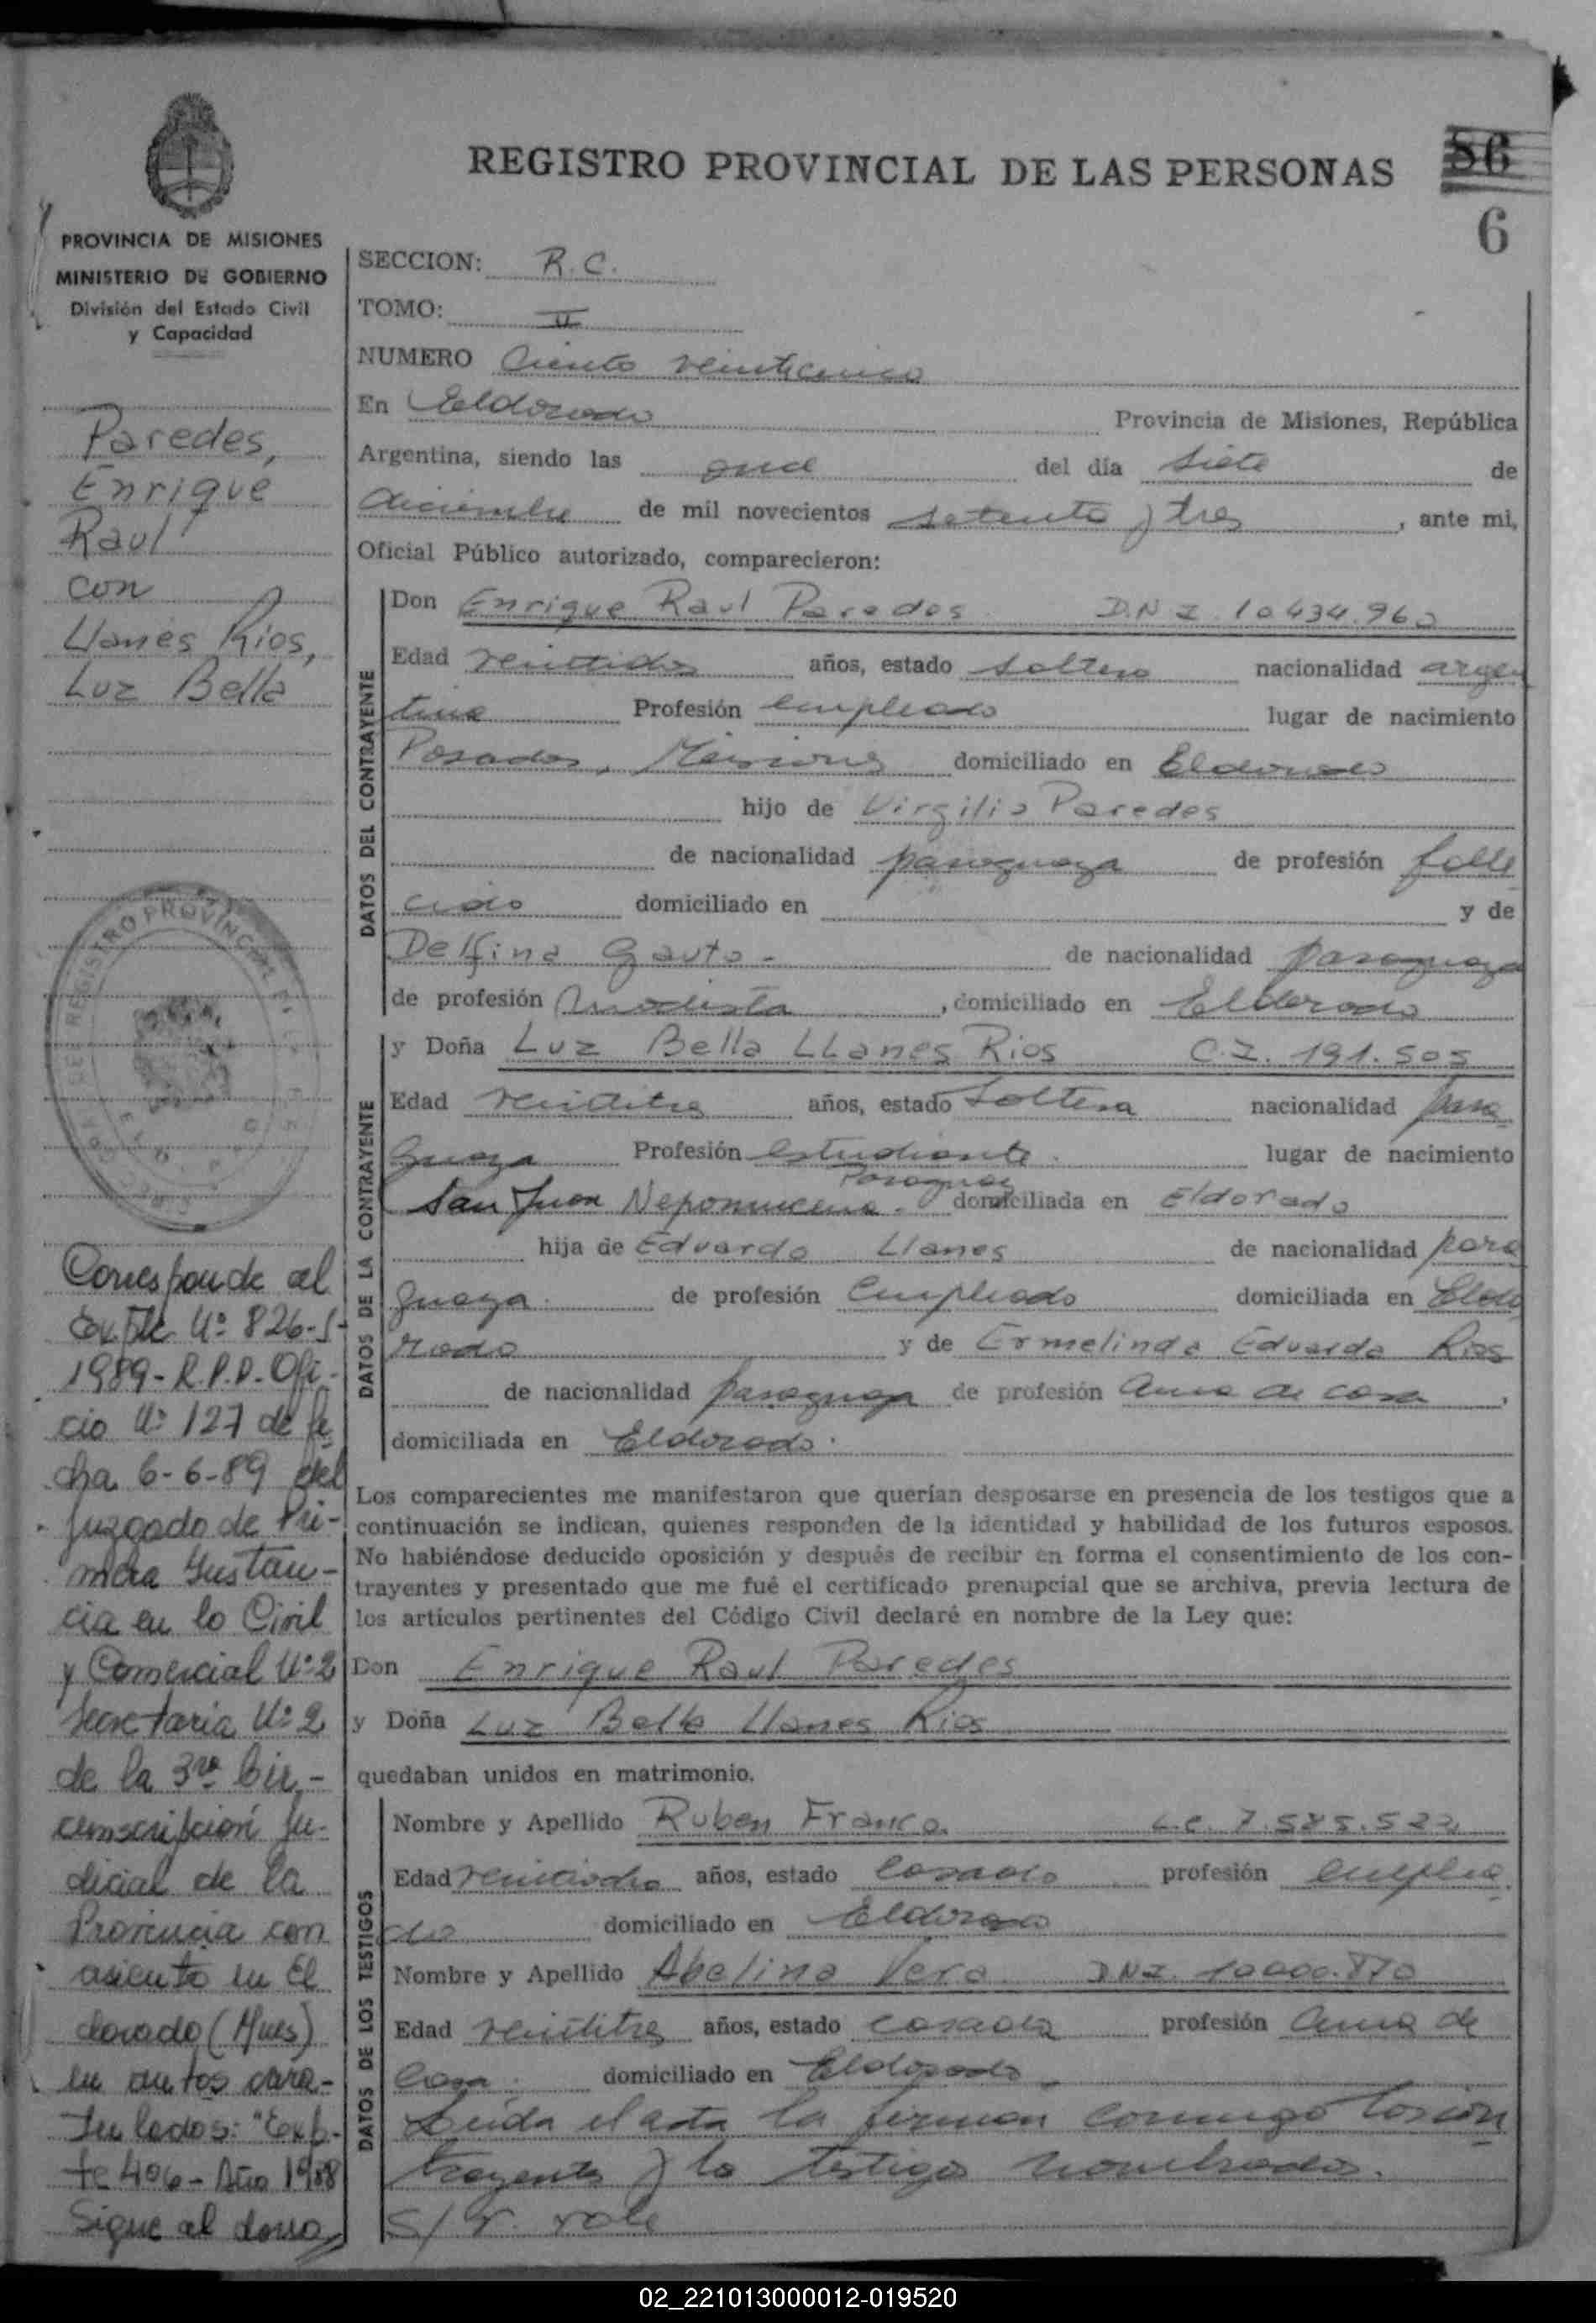 REGISTRO PROVINCIAL DE LAS PERSONAS
86
6
PROVINCIA DE MISIONES
MINISTERIO DE GOBIERNO
División del Estado Civil
y Capacidad
Paredes,
Enrique
Raul
con
Llanes Rios,
Luz Bella
REGISTRO PROVINCIAL
Corresponde al
Expte Nº 826-S-
1989- R.P.P. Ofi-
cio Nº 127 de fe
cha 6-6-89 del
Juzgado de Pri-
mera Instan-
cia en lo Civil
y Comercial Nº 2
Secretaria Nº 2
de la 3ra Cir-
cunscripción Ju-
dicial de la
Provincia con
asiento en El
dorado (Mnes)
en autos cara-
tulados: "Exp-
te 406- Año 1988
Sigue al dorso
SECCION: R.C.
TOMO: II
NUMERO Ciento veinticinco
En Eldorado Provincia de Misiones, República
Argentina, siendo las once del día siete de
diciembre de mil novecientos setenta y tres, ante mi,
Oficial Público autorizado, comparecieron:
DATOS DEL CONTRAYENTE
Don Enrique Raul Paredes D.N.I. 10.434.960
Edad veintidos años, estado soltero nacionalidad argen
tina Profesión empleado lugar de nacimiento
Posadas, Misiones domiciliado en Eldorado
hijo de Virgilio Paredes
de nacionalidad paraguaya de profesión falle
cido domiciliado en y de
Delfina Gauto - de nacionalidad paraguaya
de profesión modista, domiciliado en Eldorado
DATOS DE LA CONTRAYENTE
y Doña Luz Bella LLanes Rios C.I. 191.505
Edad veintitres años, estado soltera nacionalidad para
guaya Profesión estudiante. lugar de nacimiento
San Juan Nepomuceno. Paraguay domiciliada en Eldorado
hija de Eduardo Llanes de nacionalidad para
guaya. de profesión Empleado domiciliada en Eldo
rado y de Ermelinda Eduarda Rios
de nacionalidad paraguaya de profesión ama de casa,
domiciliada en Eldorado.
Los comparecientes me manifestaron que querían desposarse en presencia de los testigos que a
continuación se indican, quienes responden de la identidad y habilidad de los futuros esposos.
No habiéndose deducido oposición y después de recibir en forma el consentimiento de los con-
trayentes y presentado que me fué el certificado prenupcial que se archiva, previa lectura de
los artículos pertinentes del Código Civil declaré en nombre de la Ley que:
Don Enrique Raul Paredes
y Doña Luz Bella Llanes Rios
quedaban unidos en matrimonio.
DATOS DE LOS TESTIGOS
Nombre y Apellido Ruben Franco. L.E. 7.585.522
Edad veintiocho años, estado casado profesión emplea
do domiciliado en Eldorado
Nombre y Apellido Abelina Vera DNI. 10000.870
Edad veintitres años, estado casada profesión ama de
casa. domiciliado en Eldorado
Leida el acta la firman conmigo los con
trayentes y los testigos nombrados.
S/ r. vale
02_221013000012-019520